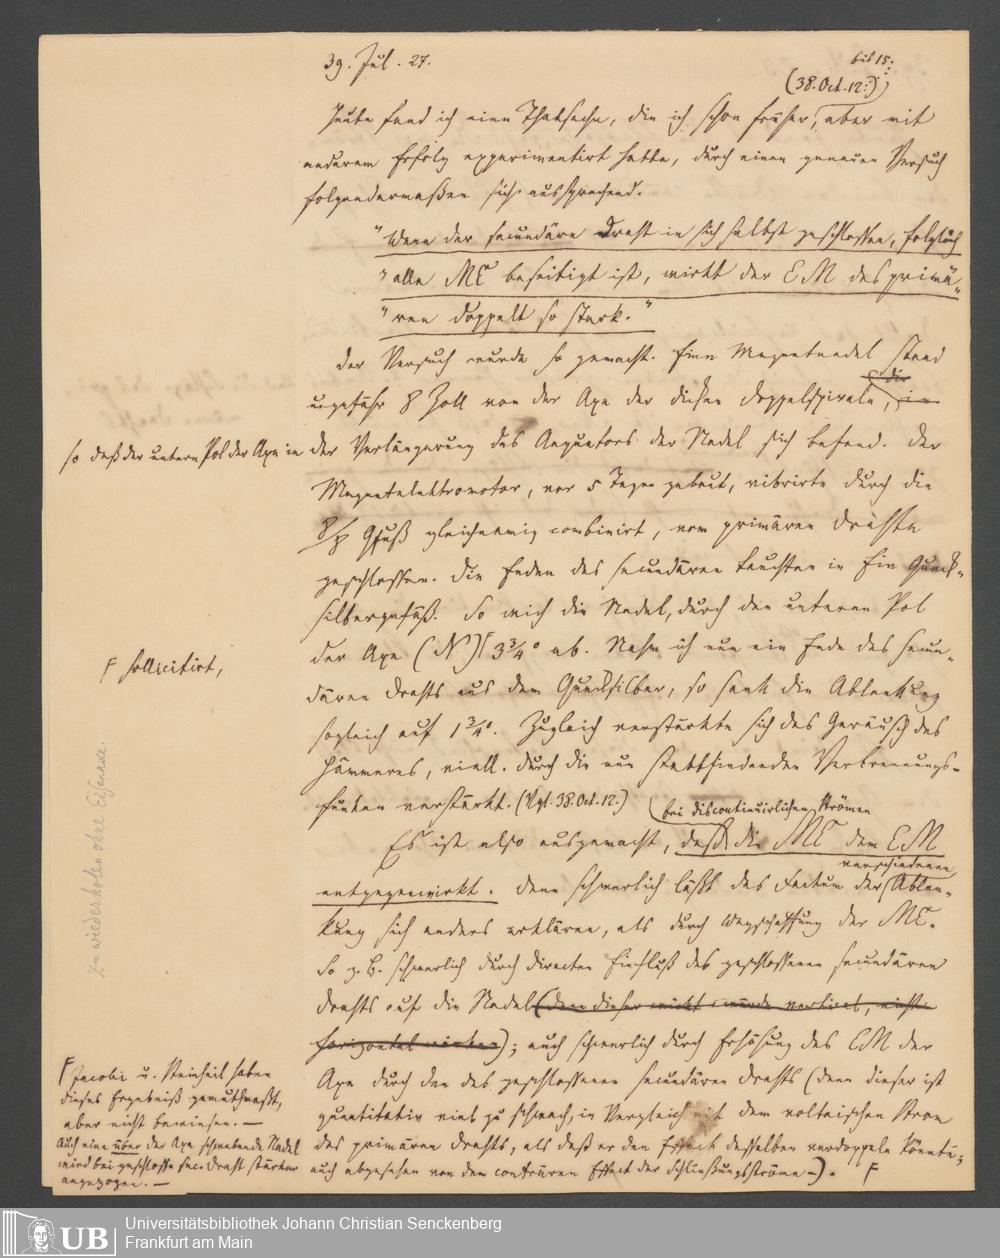 39. Jul. 27.
bis 15:
(38. Oct. 12.)
Heute fand ich eine Thatsache, die ich schon früher, aber mit
anderem Erfolg experimentirt hatte, durch einen genauen Versuch
folgendermaßen sich aussprechend.
"Wenn der secundäre Draht in sich selbst geschlossen, folglich
"alle ME beseitigt ist, wirkt der EM des primä-
"ren doppelt so stark."
Der Versuch wurde so gemacht. Eine Magnetnadel stand
ungefähr 8 Zoll von der Axe der dicken Doppelspirale,
so daß der untere Pol der Axe in der Verlängerung des Aequators der Nadel sich befand. Der
Magnetelektromotor, vor 5 Tagen gebaut, vibrirte durch die
gleichnamig combinirt, vom primären Drahte
geschlossen. Die Enden des secundären tauchten in Ein Queck-
silbergefäß. So wich die Nadel, durch den unteren Pol
der Axe (N) 3¾° ab. Nahm ich nun ein Ende des secun-
sollicitirt,
dären Drahts aus dem Quecksilber, so sank die Ablenkung
sogleich auf 1¾°. Zugleich verstärkte sich das Geräusch des
Hammers, viell. durch die nun stattfindenden Verbrennungs-
funken verstärkt. (Vgl. 38. Oct. 12.)
bei discontinuirlichen Strömen
Es ist also ausgemacht, daß die ME dem EM
entgegenwirkt. Denn schwerlich läßt das Factum der verschiedenen Ablen-
kung sich anders erklären, als durch Wegschaffung der ME.
So z. B. schwerlich durch directen Einfluß des geschlossenen secundären
Drahts auf die Nadel (denn dieser wirkt würde vertical, nicht
horizontal wirken); auch schwerlich durch Erhöhung des EM der
Axe durch den des geschlossenen secundären Drahts (denn dieser ist
quantitativ viel zu schwach, in Vergleich mit dem voltaischen Strom
des primären Drahts, als daß er den Effect desselben verdoppeln könnte;
auch abgesehen von dem conträren Effect der Schließungsströme -). F
zu wiederholen ohne Eisenaxe.
F Jacobi u. Steinheil haben
dieses Ergebniß gemuthmaßt,
aber nicht bewiesen. —
Auch eine über der Axe schwebende Nadel
wird bei geschloss. sec. Draht stärker
angezogen. —
UB
Universitätsbibliothek Johann Christian Senckenberg
Frankfurt am Main